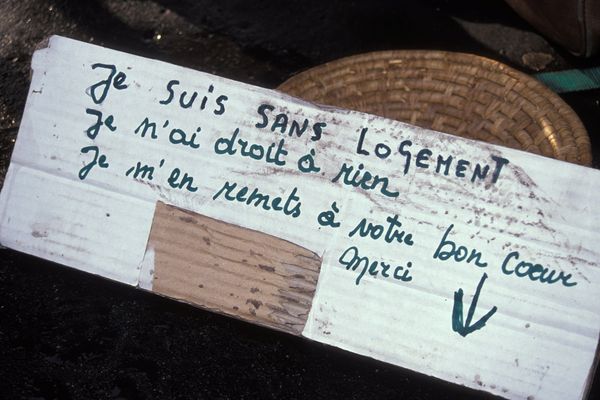 Je SUIS SANS LOGEMENT
Je n'ai droit à rien
Je m'en remets à votre bon coeur
Merci